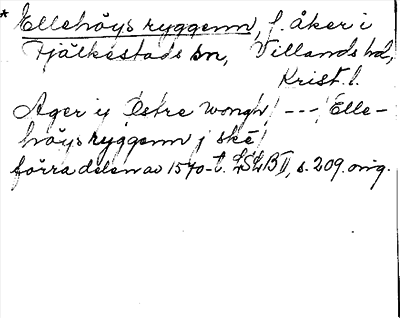 * Ellehöys ryggenn, f. åker i
Fjälkestads sn, Villands hd,
Krist. l.
Ager ij Östre wongh / --- / Elle-
höys ryggenn j ske /
förra delen av 1570-t. LSLB II, s. 209. orig.